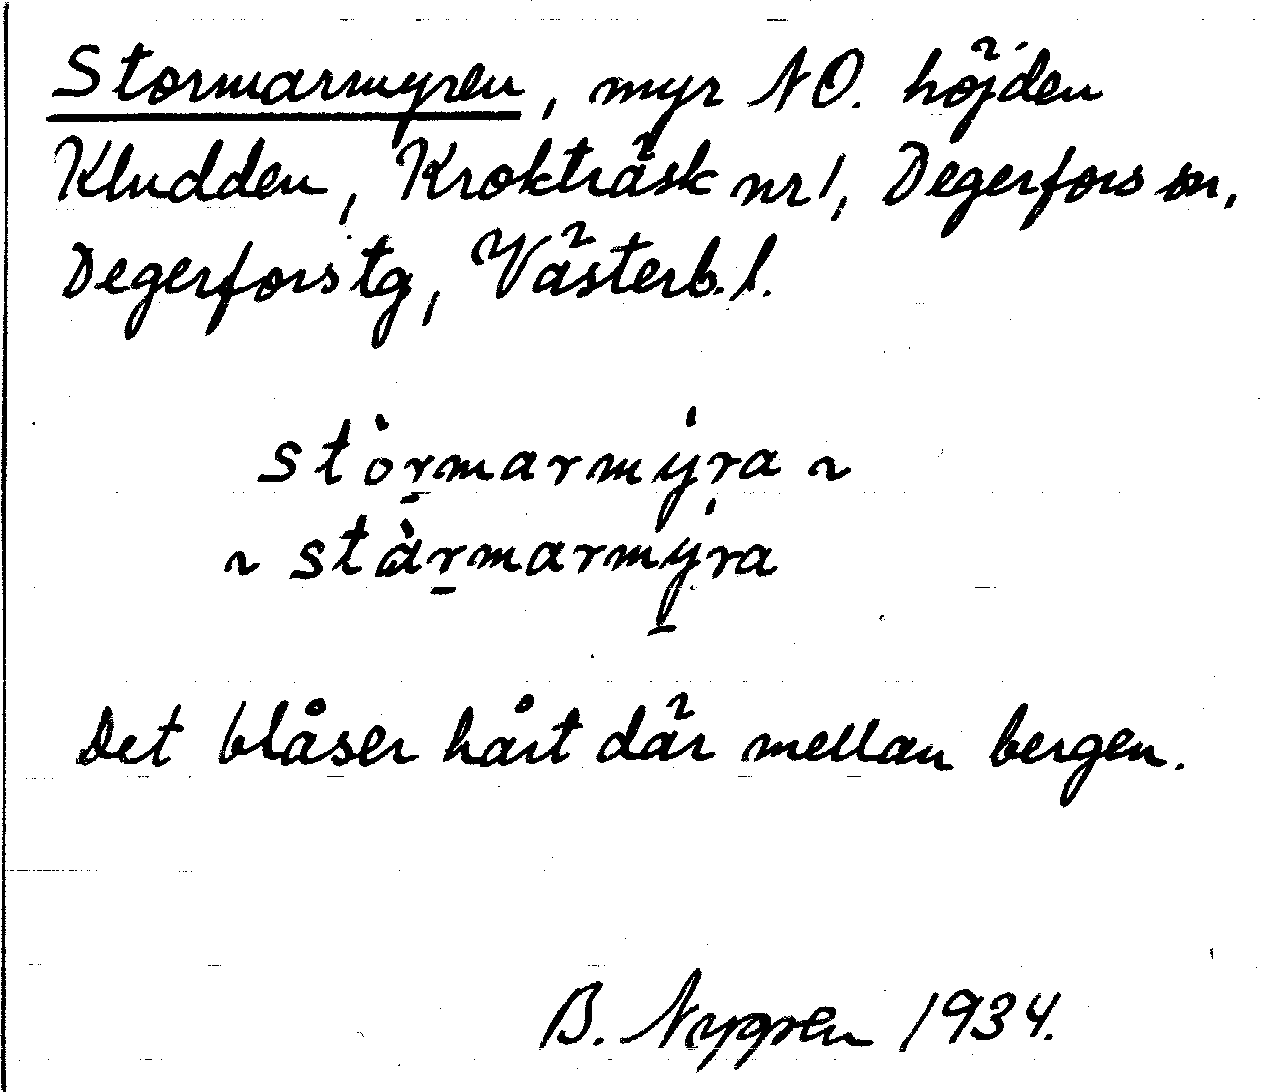 Stormarmyren, myr NO. höjden
Kludden, Krokträsk nr 1, Degerfors sn,
Degerfors tg, Västerb. l.
stòrmarmýra ~
~ stàrmarmýra
Det blåser hårt där mellan bergen.
B. Nygren 1934.